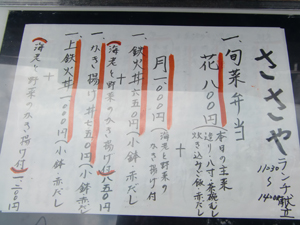 ささや
ランチ献立
11:30
〜
14:00
一、旬菜弁当
花 八〇〇円
(本日の主菜
造り・八寸・茶碗むし
炊き込みご飯・赤だし)
+
月 一、〇〇〇円
(海老と野菜の
かき揚げ付)
一、鉄火丼 六五〇円(小鉢・赤だし)
+
(海老と野菜のかき揚げ付) 八五〇円
一、かき揚げ丼 七五〇円(小鉢・赤だし)
一、上鉄火丼 一、〇〇〇円(小鉢・赤だし)
+
(海老と野菜のかき揚げ付) 一、二〇〇円